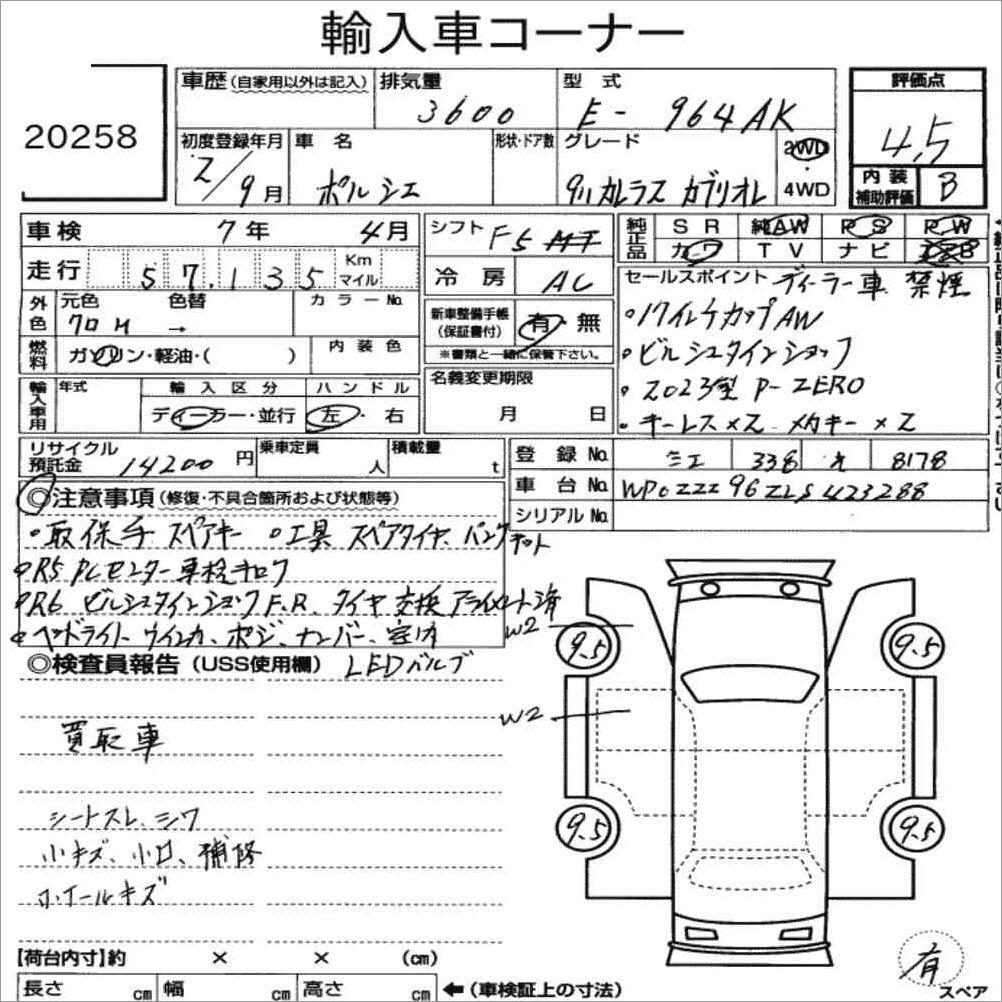 輸入車コーナー
20258
車歴(自家用以外は記入) 排気量 型式 評価点
3600 E- 964AK 4.5
初度登録年月 車名 形状・ドア数 グレード 2WD・4WD
2/9月 ポルシェ 911カレラ2 カブリオレ
内装補助評価 B
車検 7年 4月
シフト F5 MT
純正品 SR 純AW PS PW
カワ TV ナビ
走行 57,135 Km マイル
冷房 AC
外色 元色 色替 カラーNo.
クロM →
新車整備手帳(保証書付) 有・無
※書類と一緒に保管下さい。
燃料 ガソリン・軽油・( ) 内装色
輸入車用 年式 輸入区分 ハンドル
ディーラー・並行 左・右
名義変更期限
月 日
セールスポイント ディーラー車 禁煙
・17インチカップAW
・ビルシュタインショック
・2023製 P-ZERO
・キーレス×2. メカキー×2
リサイクル預託金 14200円 乗車定員 人 積載量 t
登録No. 三重 338 8178
車台No. WP0ZZZ96ZLS423288
シリアルNo.
◎注意事項(修復・不具合箇所および状態等)
・取保手 スペアキー ・工具 スペアタイヤ. パンクキット
・R5 PCセンター車検チェック
・R6 ビルシュタインショックF.R. タイヤ交換 アライメント済
・ヘッドライト ウインカ、ポジ、ナンバー、室内
LEDバルブ
◎検査員報告(USS使用欄)
買取車
シートスレ、シワ
小キズ、小凹、補修
ホイールキズ
W2
W2
9.5 9.5
9.5 9.5
【荷台内寸】約 × × (cm)
長さ cm 幅 cm 高さ cm ←(車検証上の寸法)
有
スペア